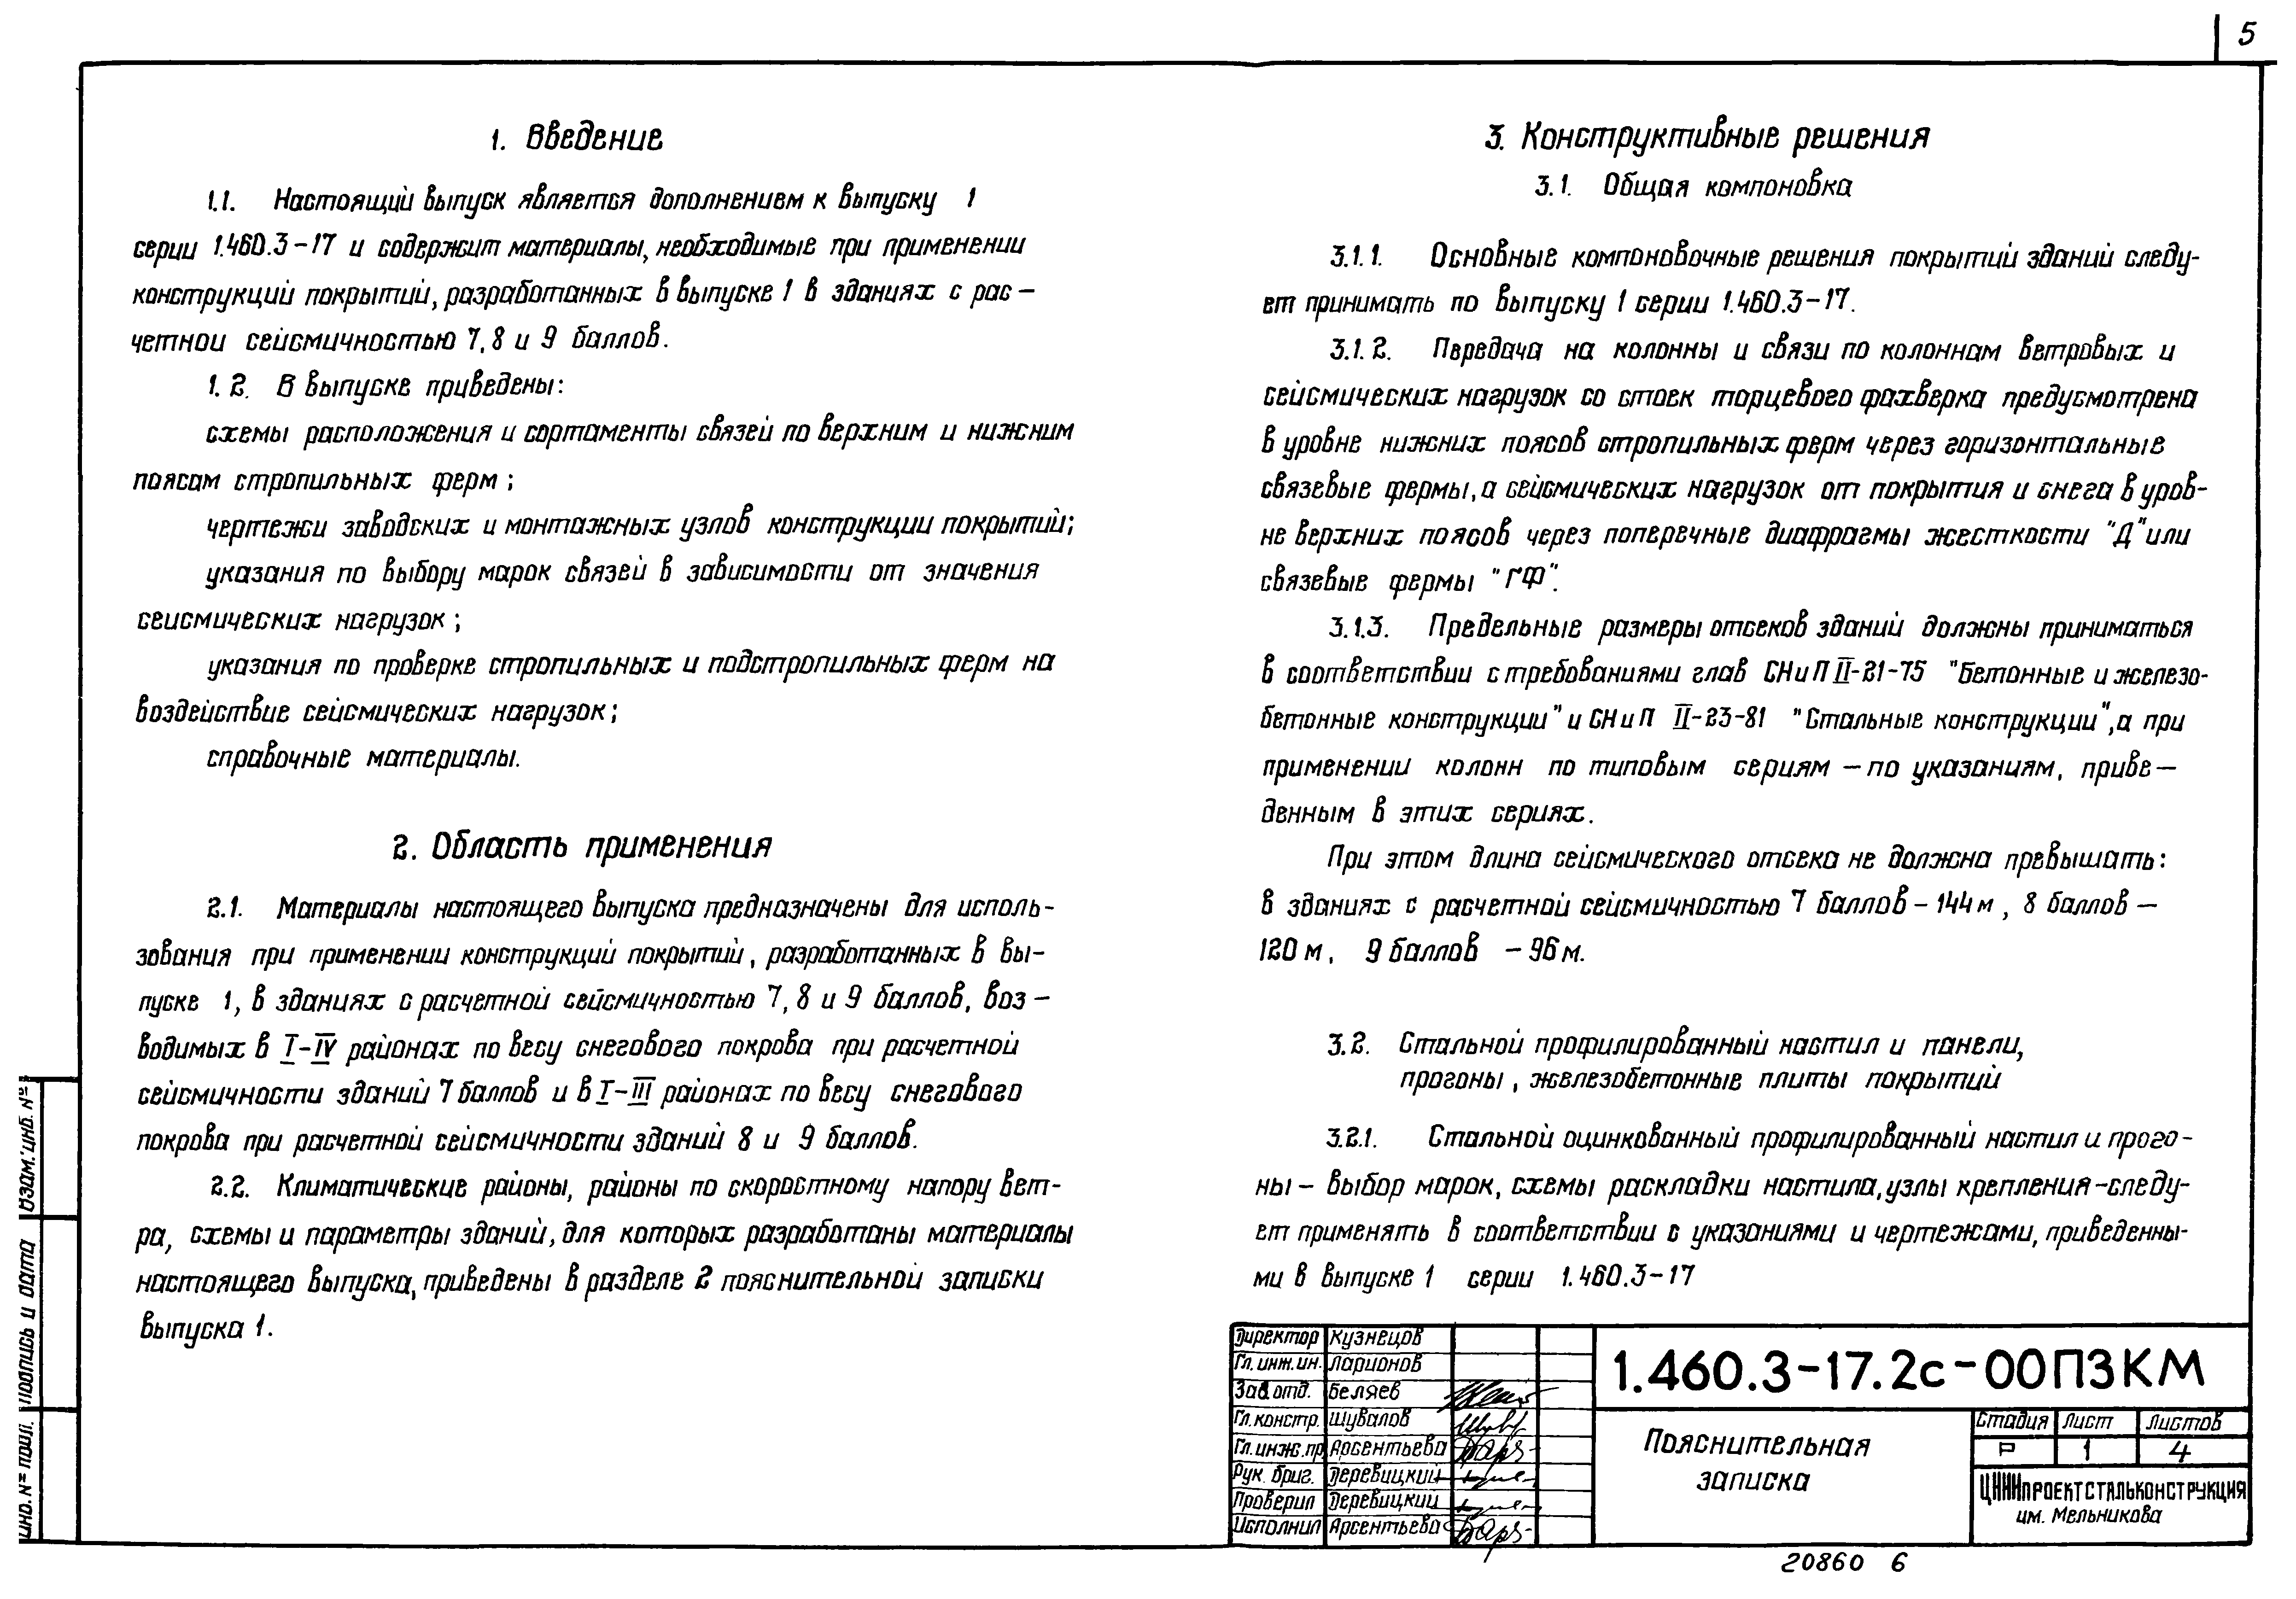 5
1. Введение
1.1. Настоящий выпуск является дополнением к выпуску 1
серии 1.460.3-17 и содержит материалы, необходимые при применении
конструкций покрытий, разработанных в выпуске 1 в зданиях с рас-
четной сейсмичностью 7, 8 и 9 баллов.
1.2. В выпуске приведены:
схемы расположения и сортаменты связей по верхним и нижним
поясам стропильных ферм;
чертежи заводских и монтажных узлов конструкции покрытий;
указания по выбору марок связей в зависимости от значения
сейсмических нагрузок;
указания по проверке стропильных и подстропильных ферм на
воздействие сейсмических нагрузок;
справочные материалы.
2. Область применения
2.1. Материалы настоящего выпуска предназначены для исполь-
зования при применении конструкций покрытий, разработанных в вы-
пуске 1, в зданиях с расчетной сейсмичностью 7, 8 и 9 баллов, воз-
водимых в I-IV районах по весу снегового покрова при расчетной
сейсмичности зданий 7 баллов и в I-III районах по весу снегового
покрова при расчетной сейсмичности зданий 8 и 9 баллов.
2.2. Климатические районы, районы по скоростному напору вет-
ра, схемы и параметры зданий, для которых разработаны материалы
настоящего выпуска, приведены в разделе 2 пояснительной записки
выпуска 1.
3. Конструктивные решения
3.1. Общая компоновка
3.1.1. Основные компоновочные решения покрытий зданий следу-
ет принимать по выпуску 1 серии 1.460.3-17.
3.1.2. Передача на колонны и связи по колоннам ветровых и
сейсмических нагрузок со стоек торцевого фахверка предусмотрена
в уровне нижних поясов стропильных ферм через горизонтальные
связевые фермы, а сейсмических нагрузок от покрытия и снега в уров-
не верхних поясов через поперечные диафрагмы жесткости "Д" или
связевые фермы "ГФ".
3.1.3. Предельные размеры отсеков зданий должны приниматься
в соответствии с требованиями глав СНиП II-21-75 "Бетонные и железо-
бетонные конструкции" и СНиП II-23-81 "Стальные конструкции", а при
применении колонн по типовым сериям – по указаниям, приве-
денным в этих сериях.
При этом длина сейсмического отсека не должна превышать:
в зданиях с расчетной сейсмичностью 7 баллов – 144 м, 8 баллов –
120 м, 9 баллов – 96 м.
3.2. Стальной профилированный настил и панели,
прогоны, железобетонные плиты покрытий
3.2.1. Стальной оцинкованный профилированный настил и прого-
ны – выбор марок, схемы раскладки настила, узлы крепления – следу-
ет применять в соответствии с указаниями и чертежами, приведенны-
ми в выпуске 1 серии 1.460.3-17
Директор Кузнецов
Гл. инж. ин. Ларионов
Зав. отд. Беляев
Гл. констр. Шувалов
Гл. инж. пр. Арсентьева
Рук. бриг. Деревицкий
Проверил Деревицкий
Исполнил Арсентьева
1.460.3-17.2с-00ПЗКМ
Пояснительная
записка
Стадия Лист Листов
Р 1 4
ЦНИИПРОЕКТСТАЛЬКОНСТРУКЦИЯ
им. Мельникова
20860 6
Взам. инв. №
Подпись и дата
Инв. № подл.